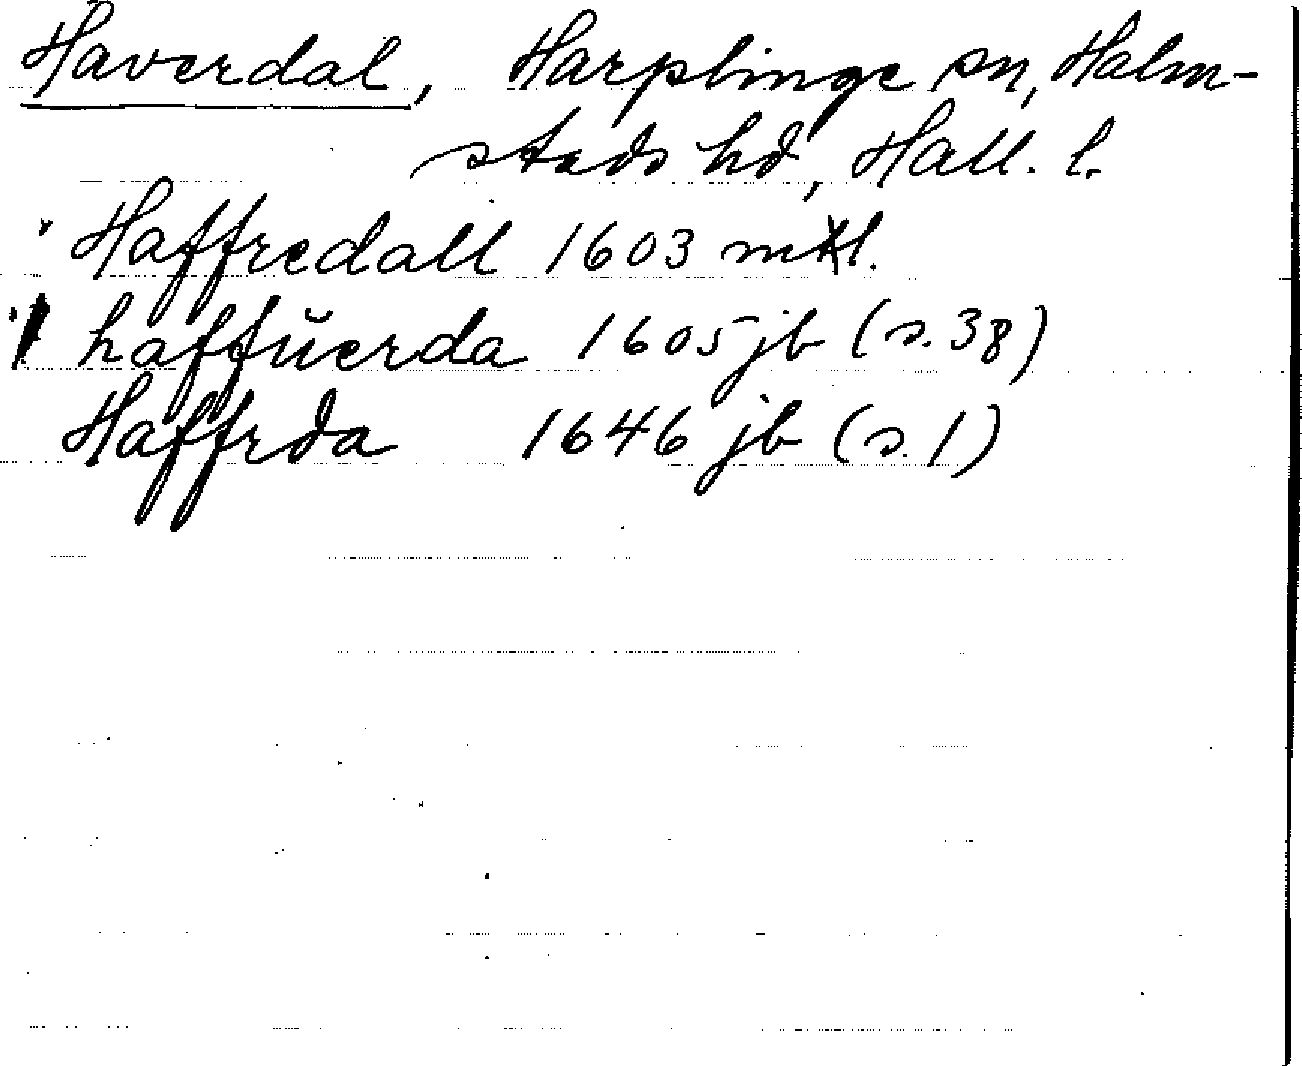 Haverdal, Harplinge sn, Halm-
stads hd, Hall. l.
Haffredall 1603 mtl.
haffŭerda 1605 jb (s. 38)
Haffrda 1646 jb (s. 1)